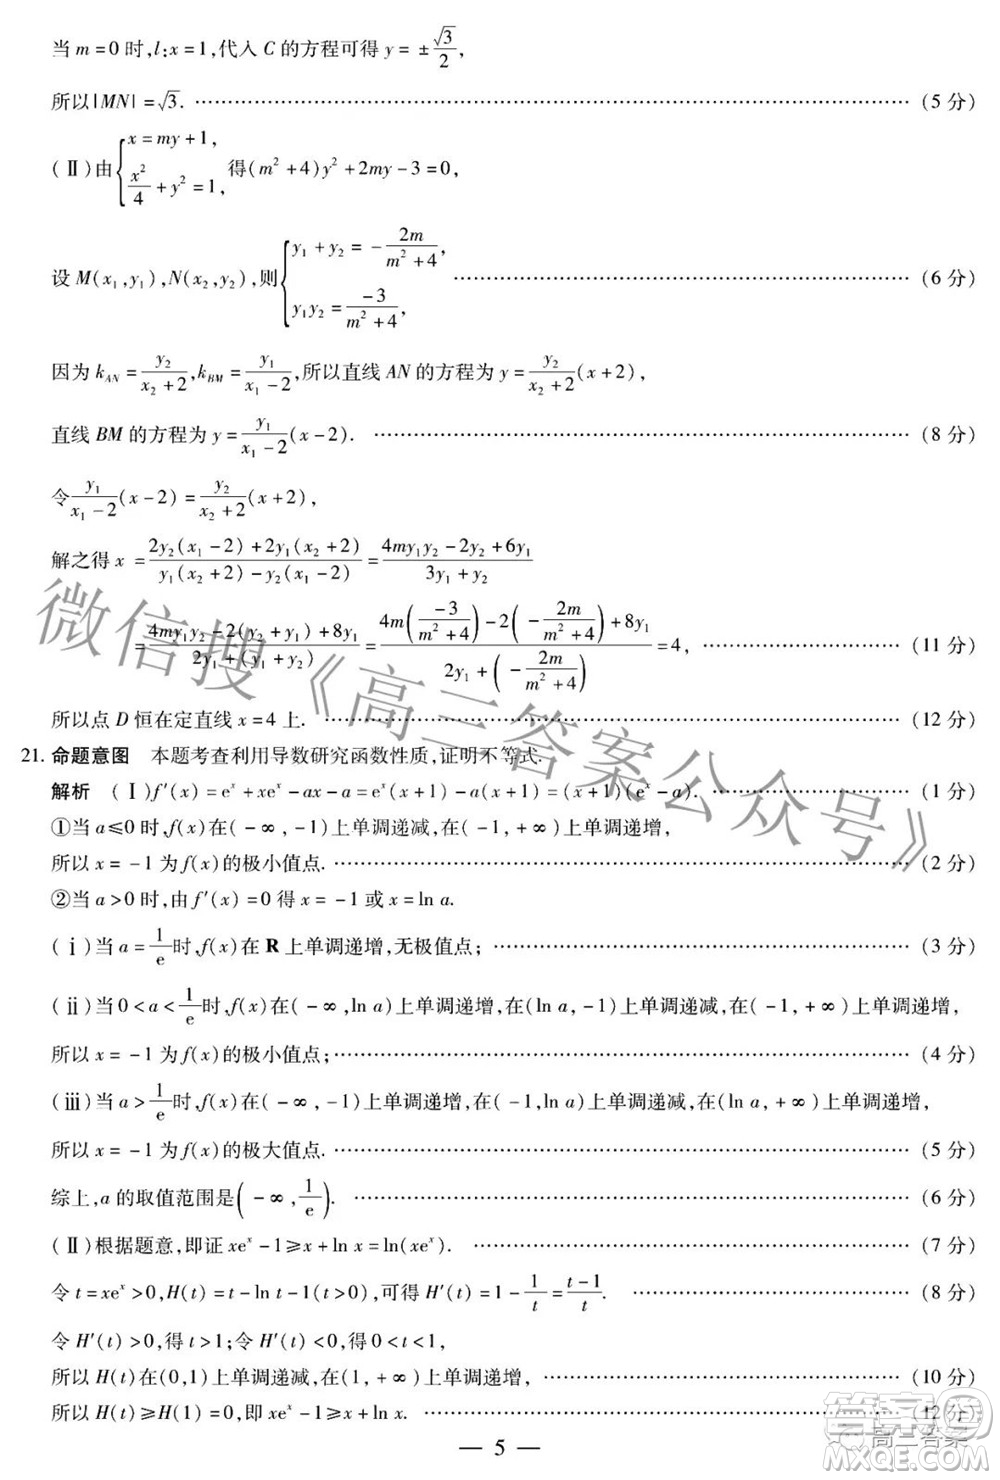 当 m=0 时,l:x=1,代入 C 的方程可得 y=±√3/2,
所以|MN|=√3. ……(5 分)
(Ⅱ)由{x=my+1, x²/4+y²=1, 得(m²+4)y²+2my-3=0,
设 M(x₁,y₁),N(x₂,y₂),则{y₁+y₂=-2m/(m²+4), y₁y₂=-3/(m²+4), ……(6 分)
因为 k_AN=y₂/(x₂+2),k_BM=y₁/(x₁-2),所以直线 AN 的方程为 y=y₂/(x₂+2)(x+2),
直线 BM 的方程为 y=y₁/(x₁-2)(x-2). ……(8 分)
令y₁/(x₁-2)(x-2)=y₂/(x₂+2)(x+2),
解之得 x=[2y₂(x₁-2)+2y₁(x₂+2)]/[y₁(x₂+2)-y₂(x₁-2)]=(4my₁y₂-2y₂+6y₁)/(3y₁+y₂)
=[4my₁y₂-2(y₂+y₁)+8y₁]/[2y₁+(y₁+y₂)]=[4m(-3/(m²+4))-2(-2m/(m²+4))+8y₁]/[2y₁+(-2m/(m²+4))]=4, ……(11 分)
所以点 D 恒在定直线 x=4 上. ……(12 分)
21. 命题意图 本题考查利用导数研究函数性质,证明不等式.
解析 (Ⅰ)f′(x)=eˣ+xeˣ-ax-a=eˣ(x+1)-a(x+1)=(x+1)(eˣ-a). ……(1 分)
①当 a≤0 时,f(x)在(-∞,-1)上单调递减,在(-1,+∞)上单调递增,
所以 x=-1 为 f(x)的极小值点. ……(2 分)
②当 a>0 时,由 f′(x)=0 得 x=-1 或 x=ln a.
(ⅰ)当 a=1/e时,f(x)在 R 上单调递增,无极值点; ……(3 分)
(ⅱ)当 0<a<1/e时,f(x)在(-∞,ln a)上单调递增,在(ln a,-1)上单调递减,在(-1,+∞)上单调递增,
所以 x=-1 为 f(x)的极小值点; ……(4 分)
(ⅲ)当 a>1/e时,f(x)在(-∞,-1)上单调递增,在(-1,ln a)上单调递减,在(ln a,+∞)上单调递增,
所以 x=-1 为 f(x)的极大值点. ……(5 分)
综上,a 的取值范围是(-∞,1/e). ……(6 分)
(Ⅱ)根据题意,即证 xeˣ-1≥x+ln x=ln(xeˣ). ……(7 分)
令 t=xeˣ>0,H(t)=t-ln t-1(t>0),可得 H′(t)=1-1/t=(t-1)/t. ……(8 分)
令 H′(t)>0,得 t>1;令 H′(t)<0,得 0<t<1,
所以 H(t)在(0,1)上单调递减,在(1,+∞)上单调递增, ……(10 分)
所以 H(t)≥H(1)=0,即 xeˣ-1≥x+ln x. ……(12 分)
— 5 —
微信搜《高三答案公众号》
高三答案
答案圈
MXQE.COM